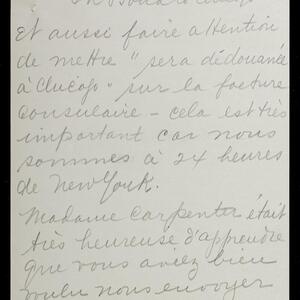 Et aussi faire attention
de mettre "sera dédouanée
à Chicago" sur la facture
Consulaire – cela est très
important car nous
sommes à 24 heures
de New York.
Madame Carpenter était
très heureuse d'apprendre
que vous aviez bien
voulu nous envoyer